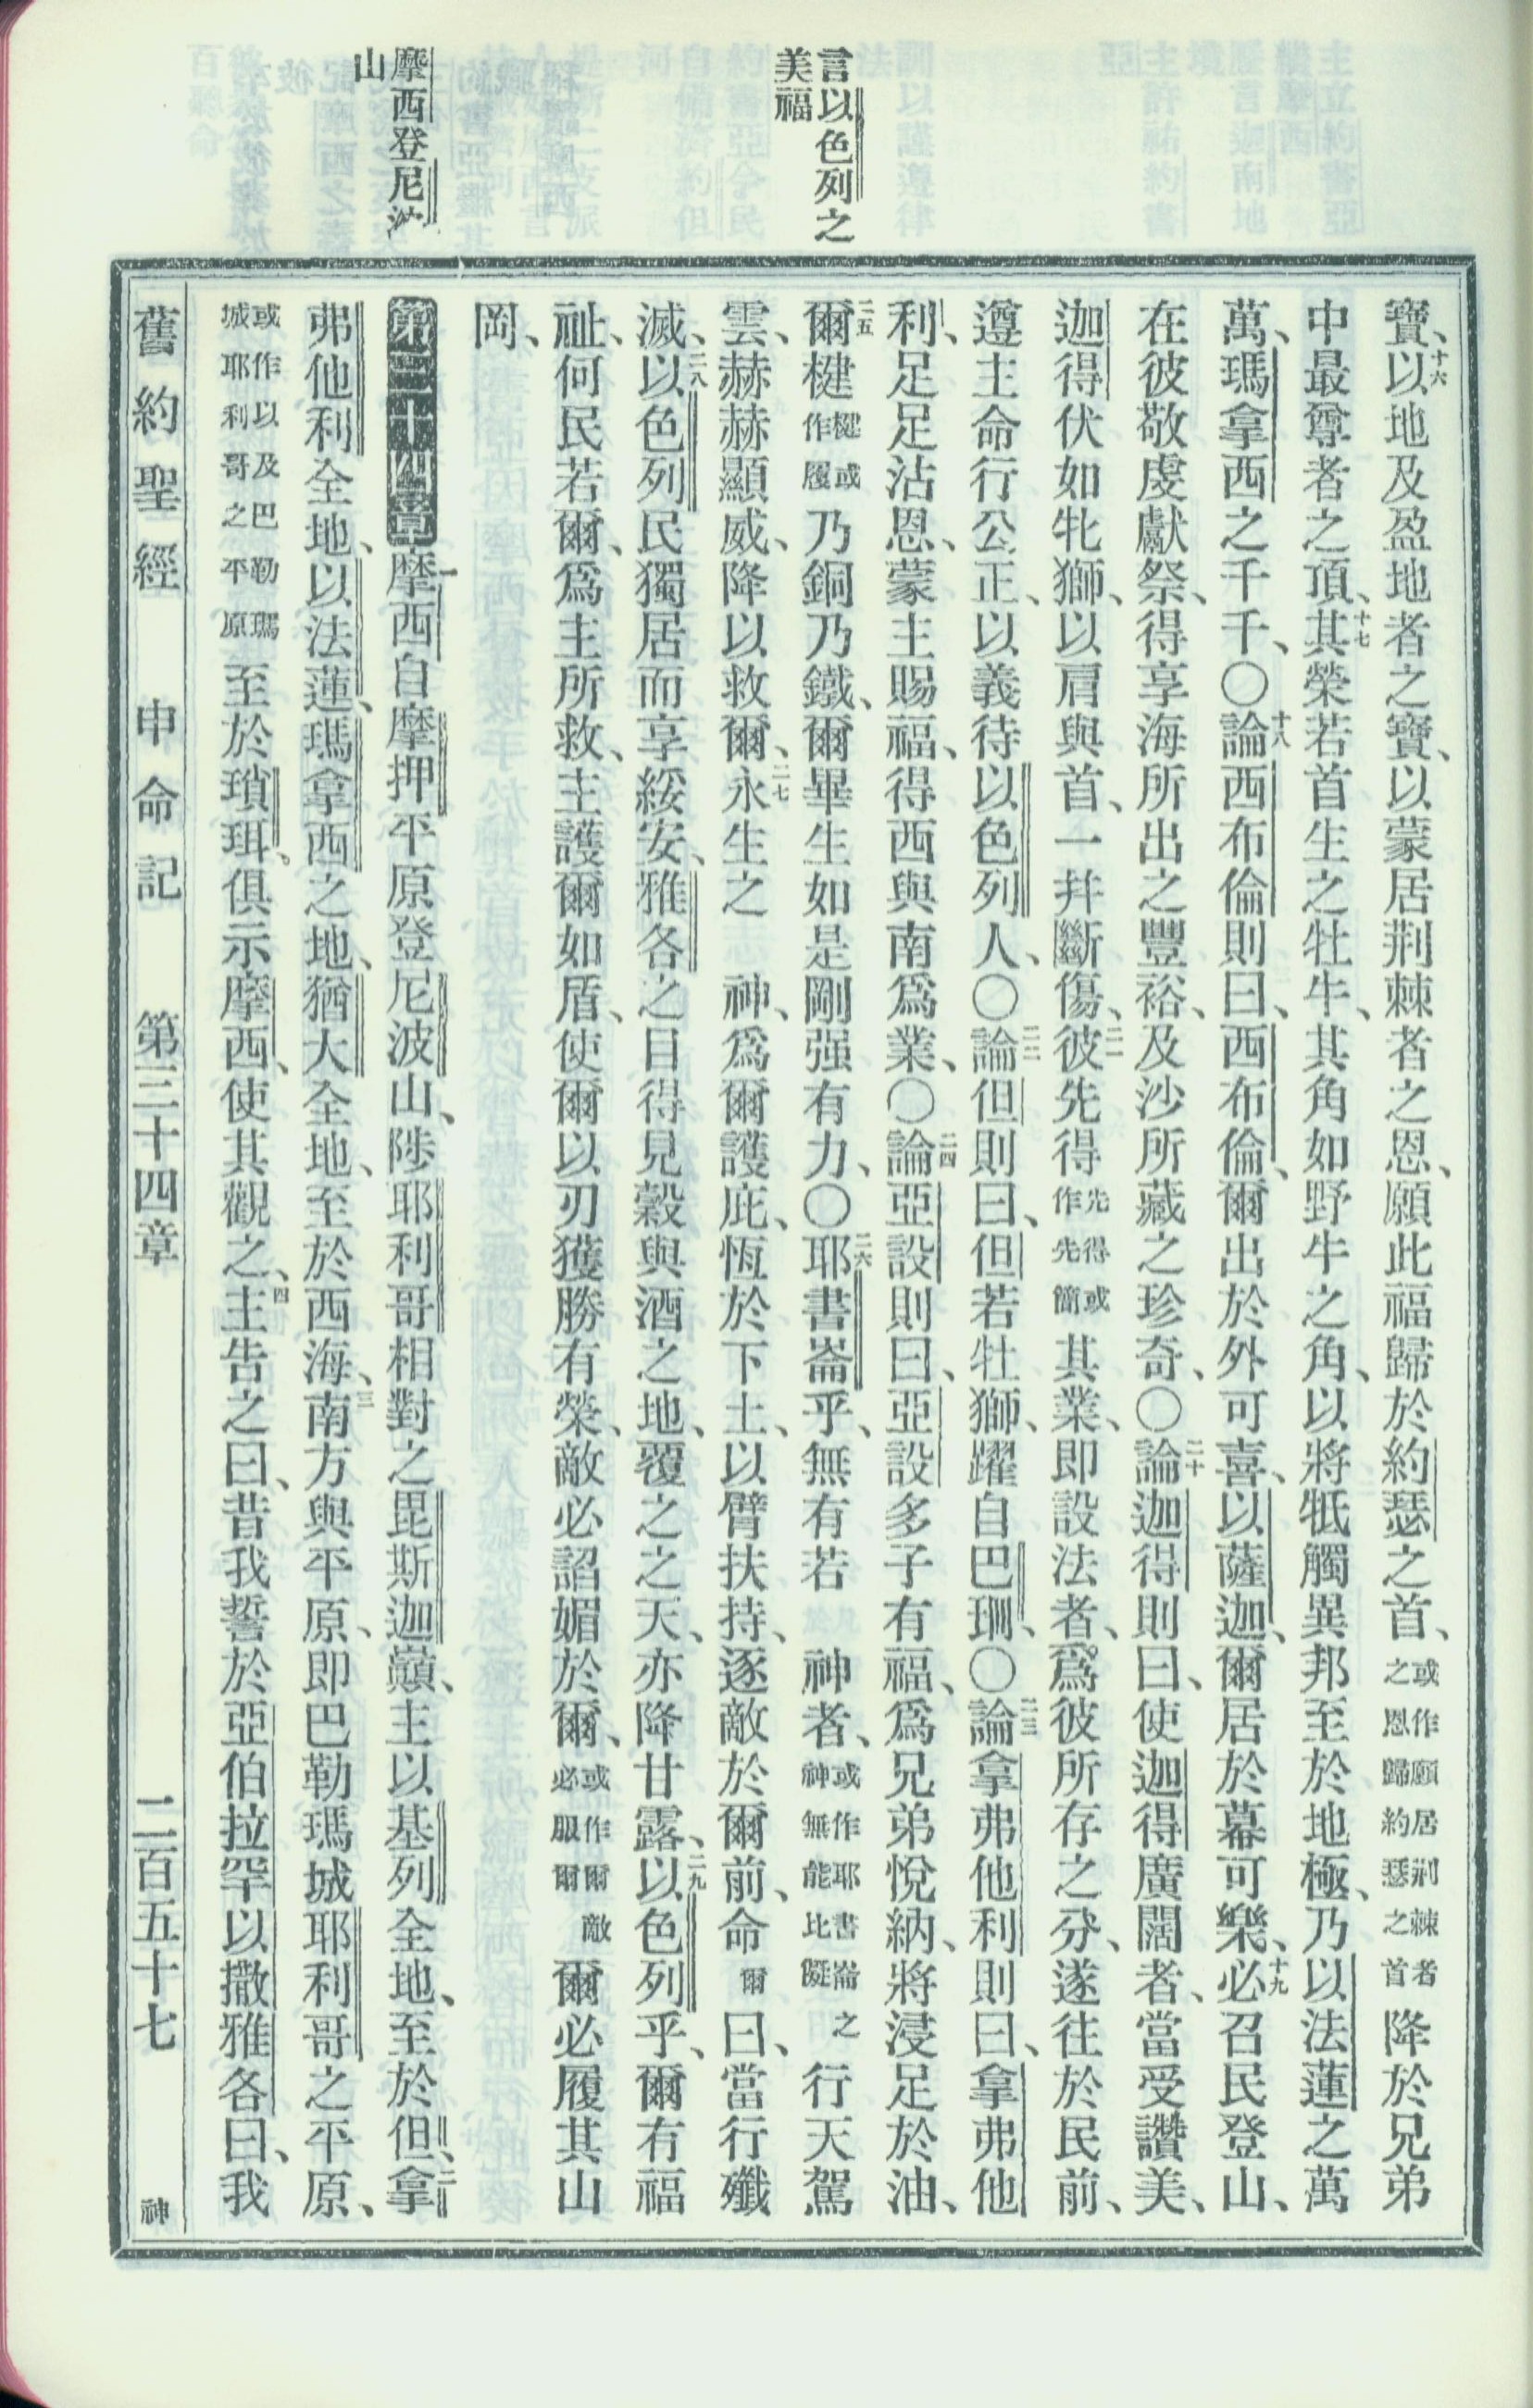 言以色列之
美福
摩西登尼波
山
寶、十六以地及盈地者之寶、以蒙居荆棘者之恩、願此福歸於約瑟之首、或作願居荆棘者之恩歸約瑟之首降於兄弟
中最尊者之頂、十七其榮若首生之牡牛、其角如野牛之角、以將牴觸異邦至於地極、乃以法蓮之萬
萬、瑪拿西之千千、〇十八論西布倫則曰、西布倫、爾出於外可喜、以薩迦、爾居於幕可樂、十九必召民登山、
在彼敬虔獻祭、得享海所出之豐裕、及沙所藏之珍奇、〇二十論迦得則曰、使迦得廣闊者、當受讚美、
迦得伏如牝獅、以肩與首、一并斷傷、二一彼先得先得或作先簡其業、即設法者、爲彼所存之分、遂往於民前、
遵主命行公正、以義待以色列人、〇二二論但則曰、但若牡獅、躍自巴珊、〇二三論拿弗他利則曰、拿弗他
利、足足沾恩、蒙主賜福、得西與南爲業、〇二四論亞設則曰、亞設多子有福、爲兄弟悅納、將浸足於油、
二五爾楗楗或作履乃銅乃鐵、爾畢生如是剛强有力、〇二六耶書崙乎、無有若 神者、或作耶書崙之神無能比儗行天駕
雲、赫赫顯威、降以救爾、二七永生之 神、爲爾護庇、恆於下土、以臂扶持、逐敵於爾前、命爾曰、當行殲
滅、二八以色列民獨居而享綏安、雅各之目得見穀與酒之地、覆之之天、亦降甘露、二九以色列乎、爾有福
祉、何民若爾、爲主所救、主護爾如盾、使爾以刃獲勝有榮、敵必諂媚於爾、或作爾敵必服爾爾必履其山
岡、
第三十四章一摩西自摩押平原登尼波山、陟耶利哥相對之毘斯迦巓、主以基列全地、至於但、二拿
弗他利全地、以法蓮、瑪拿西之地、猶大全地、至於西海、三南方與平原、即巴勒瑪城耶利哥之平原、
或作以及巴勒瑪城耶利哥之平原至於瑣珥、俱示摩西、使其觀之、四主告之曰、昔我誓於亞伯拉罕以撒雅各曰、我
舊約聖經 申命記 第三十四章 二百五十七 神